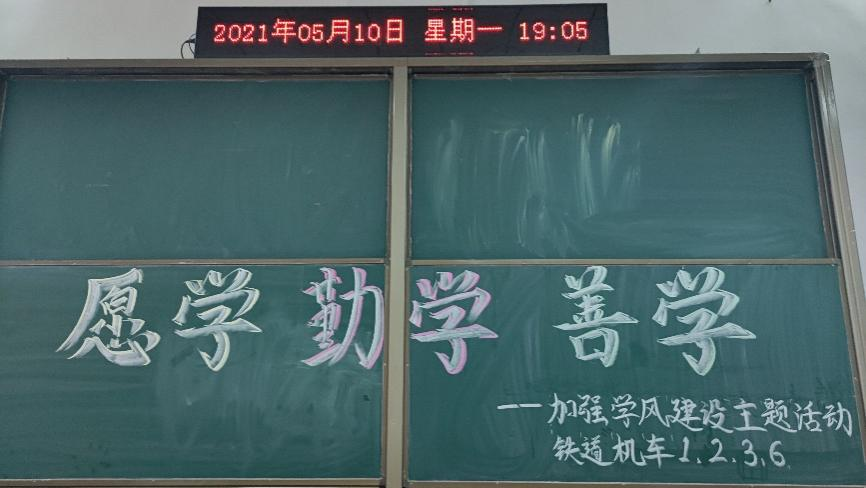 2021年05月10日 星期一 19:05
愿学 勤学 善学
——加强学风建设主题活动
铁道机车1.2.3.6.